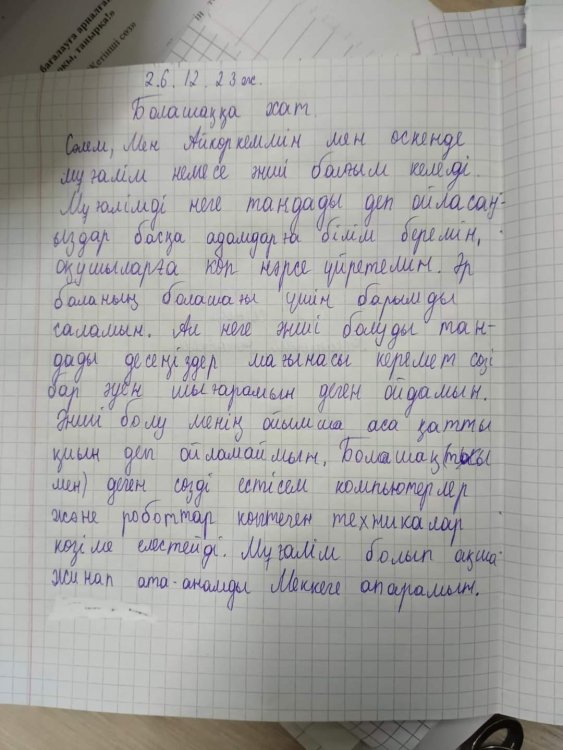 бағалауға арналға
рқы, танырқа!»
Жетінші сөз»
26.12.23ж.
Болашаққа хат.
Сәлем, Мен Айкоркемлин мен өскенде
мұғалім немесе әнші болғым келеді.
Мұғалімді неге тандады деп ойласаң-
ыздар басқа адамдарға білім беремін,
оқушыларға көп нәрсе үйретемин. Әр
баланың болашағы үшін барымды
саламын. Ал неге әнші болуды тан-
дады десеңіздер мағынасы керемет сөзі
бар әуен шығарамын деген ойдамын.
Әнші болу менің ойымша аса қатты
қиын деп ойламаймын. Болашақ
мен) деген сөзді естісем компьютерлер
және роботтар көптеген техникалар
көзіме елестейді. Мұғалім болып ақша
жинап ата-анамды Меккеге апарамын.